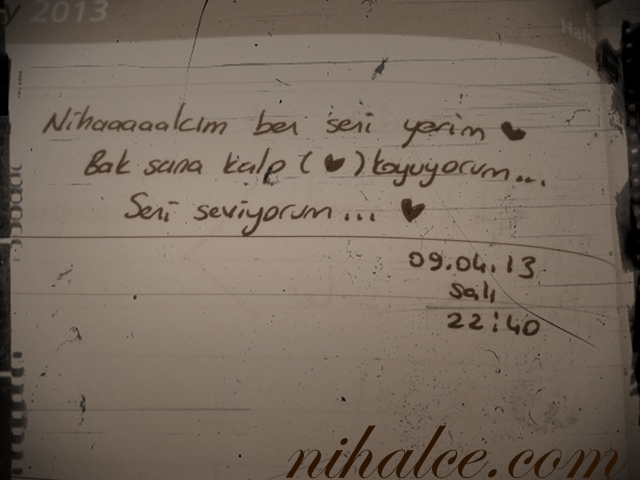 y 2013
Haft
Nihaaaaalcım ben seni yerim ♥
Bak sana kalp (♥) koyuyorum...
Seni seviyorum... ♥
09.04.13
Salı
22:40
nihalce.com